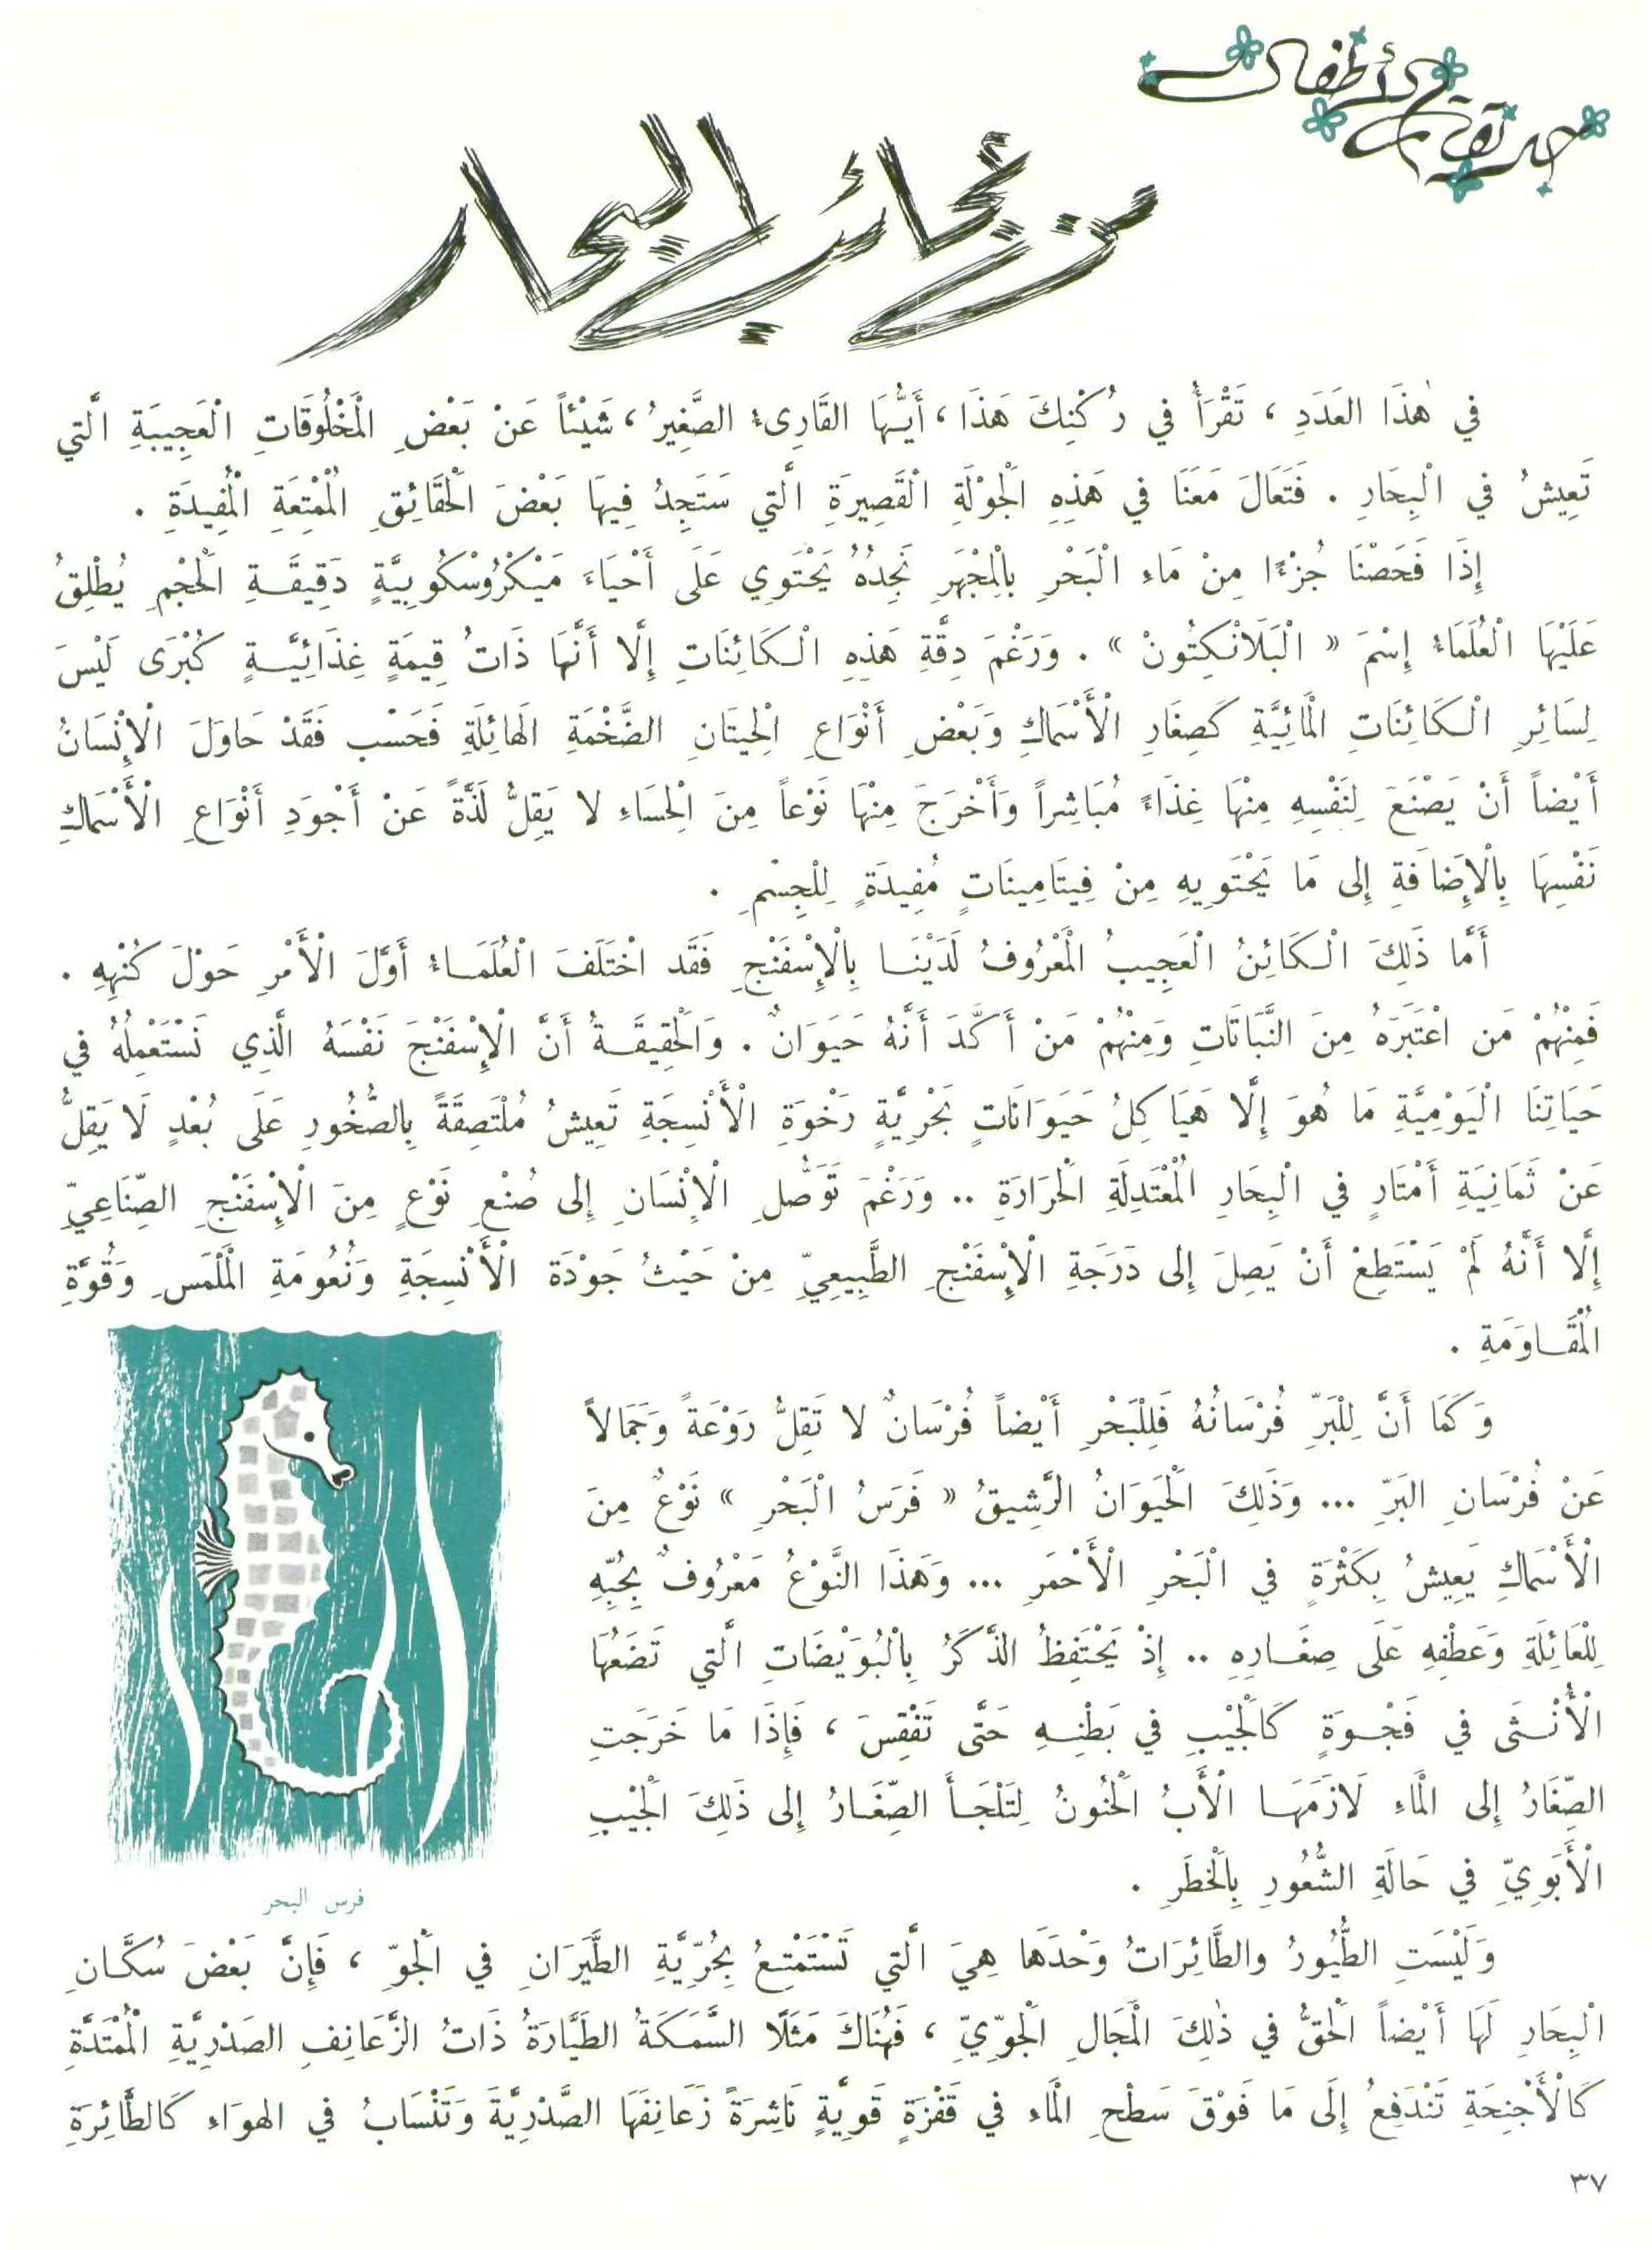 حديقة الأطفال
من عجائب البحار
في هٰذَا العَدَدِ ، تَقْرَأُ في رُكْنِكَ هَذَا ، أَيُّهَا القَارِىءُ الصَّغِيرُ ، شَيْئاً عَنْ بَعْضِ الْمَخْلُوقَاتِ الْعَجِيبَةِ الَّتي
تَعِيشُ في الْبِحَارِ . فَتَعَالَ مَعَنَا في هَذِهِ الْجَوْلَةِ الْقَصِيرَةِ الَّتي سَتَجِدُ فِيهَا بَعْضَ الْحَقَائِقِ الْمُمْتِعَةِ الْمُفِيدَةِ .
إِذَا فَحَصْنَا جُزْءًا مِنْ مَاءِ الْبَحْرِ بِالْمِجْهَرِ نَجِدُهُ يَحْتَوِي عَلَى أَحْيَاءَ مَيْكْرُوسْكُوبِيَّةٍ دَقِيقَـةِ الْحَجْمِ يُطْلِقُ
عَلَيْهَا الْعُلَمَاءُ إِسْمَ « الْبَلَانْكِتُونْ » . وَرَغْمَ دِقَّةِ هَذِهِ الْكَائِنَاتِ إِلَّا أَنَّهَا ذَاتُ قِيمَةٍ غِذَائِيَّـةٍ كُبْرَى لَيْسَ
لِسَائِرِ الْكَائِنَاتِ الْمَائِيَّةِ كَصِغَارِ الْأَسْمَاكِ وَبَعْضِ أَنْوَاعِ الْحِيتَانِ الضَّخْمَةِ الهَائِلَةِ فَحَسْب فَقَدْ حَاوَلَ الْإِنْسَانُ
أَيْضاً أَنْ يَصْنَعَ لِنَفْسِهِ مِنْهَا غِذَاءً مُبَاشِراً وَأَخْرَجَ مِنْهَا نَوْعاً مِنَ الْحِسَاءِ لا يَقِلُّ لَذَّةً عَنْ أَجْوَدِ أَنْوَاعِ الْأَسْمَاكِ
نَفْسِهَا بِالْإِضَافَةِ إِلى مَا يَحْتَوِيهِ مِنْ فِيتَامِينَاتٍ مُفِيدَةٍ لِلْجِسْمِ .
أَمَّا ذَلِكَ الْكَائِنُ الْعَجِيبُ الْمَعْرُوفُ لَدَيْنَـا بِالْإِسْفَنْجِ فَقَد اخْتَلَفَ الْعُلَمَـاءُ أَوَّلَ الْأَمْرِ حَوْلَ كُنْهِهِ .
فَمِنْهُمْ مَن اعْتَبَرَهُ مِنَ النَّبَاتَاتِ وَمِنْهُمْ مَنْ أَكَّدَ أَنَّهُ حَيَوَانٌ . وَالْحَقِيقَـةُ أَنَّ الْإِسْفَنْجَ نَفْسَهُ الَّذِي نَسْتَعْمِلُهُ في
حَيَاتِنَا الْيَوْمِيَّةِ مَا هُوَ إِلَّا هَيَاكِلُ حَيَوَانَاتٍ بَحْرِيَّةٍ رَخْوَةِ الْأَنْسِجَةِ تَعِيشُ مُلْتَصِقَةً بِالصُّخُورِ عَلَى بُعْدٍ لَا يَقِلُّ
عَنْ ثَمَانِيَةِ أَمْتَارٍ في الْبِحَارِ الْمُعْتَدِلَةِ الْحَرَارَةِ .. وَرَغْمَ تَوَصُّلِ الْإِنْسَانِ إِلى صُنْعِ نَوْعٍ مِنَ الْإِسْفَنْجِ الصِّنَاعِيِّ
إِلَّا أَنَّهُ لَمْ يَسْتَطِعْ أَنْ يَصِلَ إِلى دَرَجَةِ الْإِسْفَنْجِ الطَّبِيعِيِّ مِنْ حَيْثُ جَوْدَة الْأَنْسِجَةِ وَنُعُومَةِ الْمَلْمَسِ وَقُوَّةِ
الْمُقَـاوَمَةِ .
وَكَمَا أَنَّ لِلْبَرِّ فُرْسَانُهُ فَلِلْبَحْرِ أَيْضاً فُرْسَانٌ لا تَقِلُّ رَوْعَةً وَجَمَالاً
عَنْ فُرْسَانِ البَرِّ ... وَذَلِكَ الْحَيَوَانُ الرَّشِيقُ « فَرَسُ الْبَحْرِ » نَوْعٌ مِنَ
الْأَسْمَاكِ يَعِيشُ بِكَثْرَةٍ في الْبَحْرِ الْأَحْمَرِ ... وَهَذَا النَّوْعُ مَعْرُوفٌ بِحُبِّهِ
لِلْعَائِلَةِ وَعَطْفِهِ عَلَى صِغَـارِهِ .. إِذْ يَحْتَفِظُ الذَّكَرُ بِالْبُوَيْضَاتِ الَّتي تَضَعُهَا
الْأُنْـثَى في فَجْـوَةٍ كَالْجَيْبِ في بَطْنِـهِ حَتَّى تَفْقِسَ ، فَإِذَا مَا خَرَجَتِ
الصِّغَارُ إِلى الْمَاءِ لَازَمَهَـا الْأَبُ الْحَنُونُ لِتَلْجَـأَ الصِّغَـارُ إِلى ذَلِكَ الْجَيْبِ
الْأَبَوِيِّ في حَالَةِ الشُّعُورِ بِالْخَطَرِ .
فرس البحر
وَلَيْسَتِ الطُّيُورُ والطَّائِرَاتُ وَحْدَهَا هِيَ الَّتي تَسْتَمْتِـعُ بِحُرِّيَّةِ الطَّيَرَانِ في الْجَوِّ ، فَإِنَّ بَعْضَ سُكَّـانِ
الْبِحَارِ لَهَا أَيْضاً الْحَقُّ في ذٰلِكَ الْمَجَالِ الْجَوِّيِّ ، فَهُنَاكَ مَثَلًا السَّمَكَةُ الطَيَّارَةُ ذَاتُ الزَّعَانِفِ الصَدْرِيَّةِ الْمُمْتَدَّةِ
كَالْأَجْنِحَةِ تَنْدَفِعُ إِلَى مَا فَوْقَ سَطْحِ الْمَاءِ في قَفْزَةٍ قَوِيَّةٍ نَاشِرَةً زَعَانِفَهَا الصَّدْرِيَّةَ وَتَنْسَابُ في الهوَاءِ كَالطَّائِرَةِ
٣٧